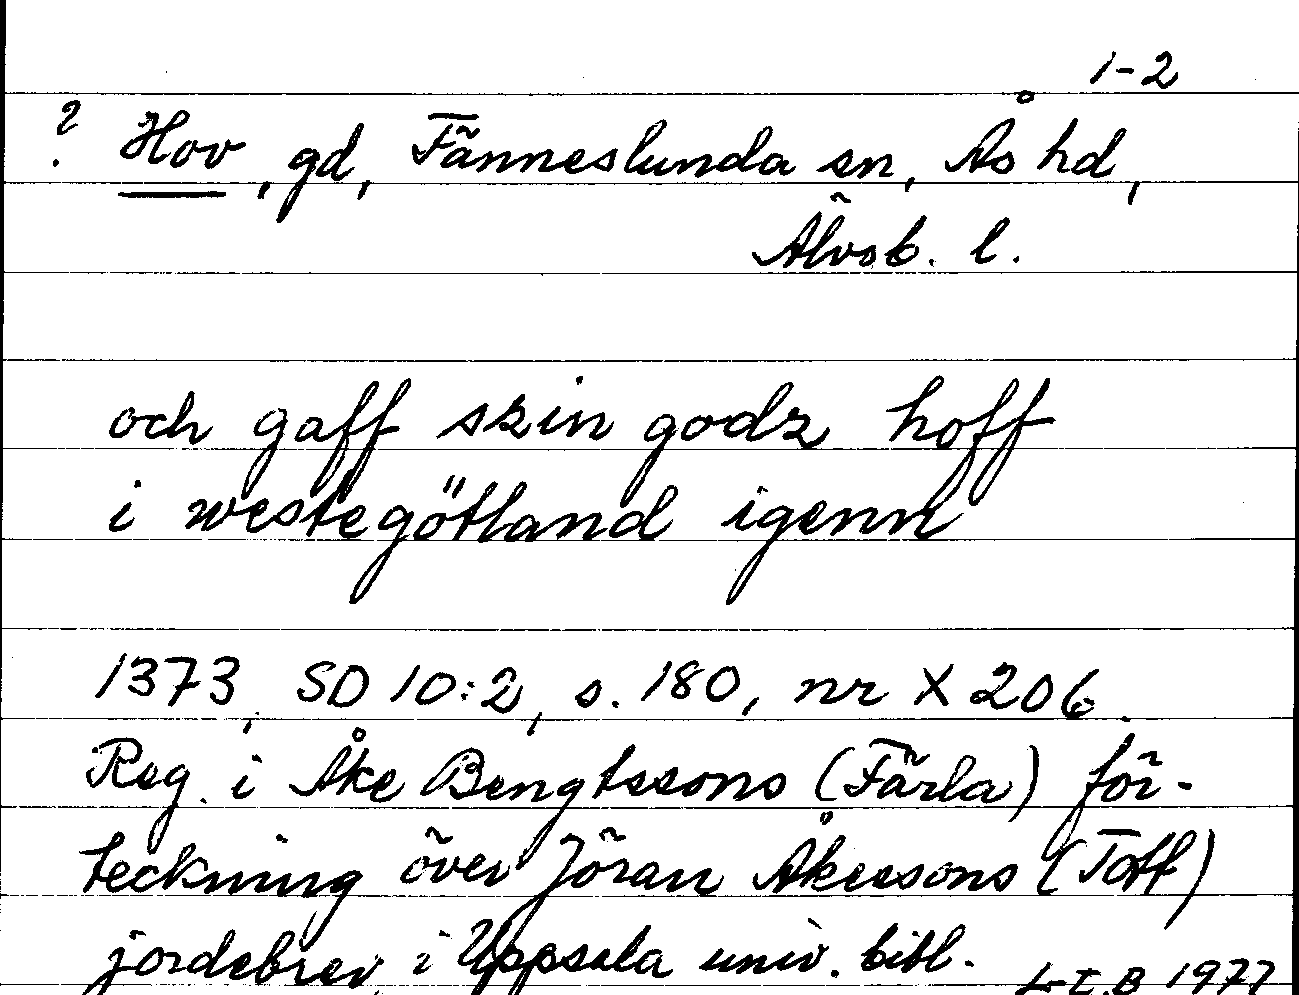 1-2
? Hov, gd, Fänneslunda sn, Ås hd,
Älvsb. l.
och gaff szin godz hoff
i westegötland igenn
1373, SD 10:2, s. 180, nr X 206.
Reg. i Åke Bengtssons (Färla) för-
teckning över Jöran Åkessons (Tott)
jordebrev, i Uppsala univ. bibl.
1977